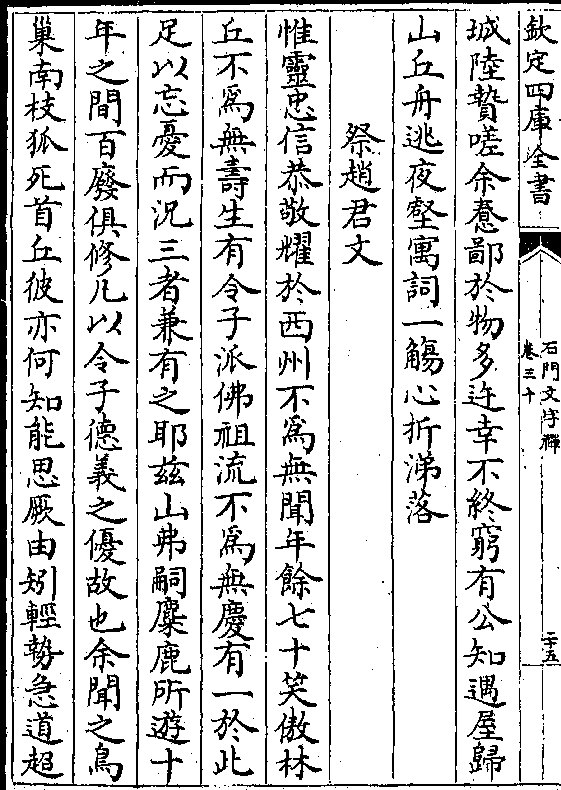 欽定四庫全書
石門文字禪
卷三十
二十五
城陸贄嗟余憃鄙於物多迕幸不終窮有公知遇屋歸
山丘舟逃夜壑寓詞一觴心折涕落
祭趙君文
惟靈忠信恭敬耀於西州不為無聞年餘七十笑傲林
丘不為無壽生有令子派佛祖流不為無慶有一於此
足以忘憂而況三者兼有之耶兹山弗嗣麋鹿所遊十
年之間百廢俱修凡以令子德義之優故也余聞之鳥
巢南枝狐死首丘彼亦何知能思厥由矧輕勢急道超